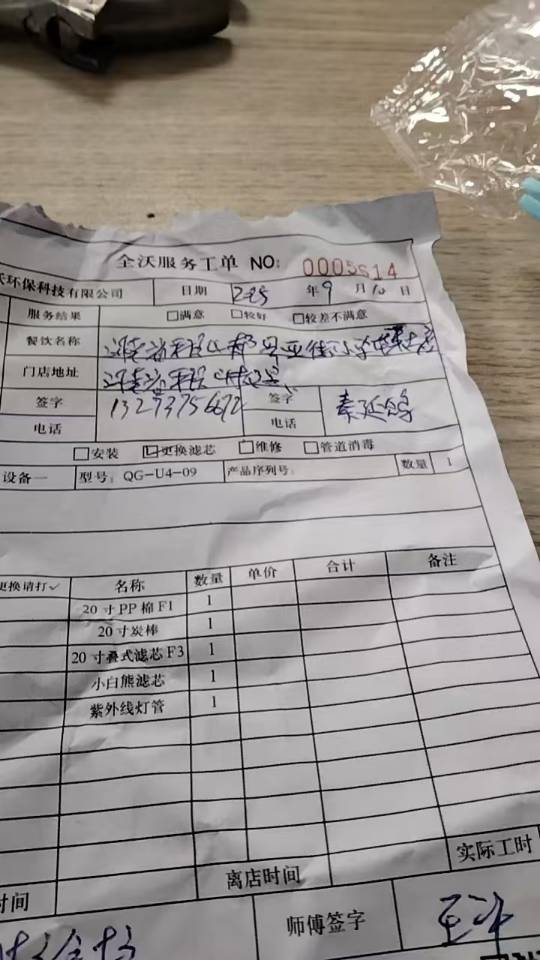 全沃服务工单 NO: 0005614
沃环保科技有限公司 日期 225 年 9 月 10 日
服务结果 □满意 □较好 □较差不满意
餐饮名称
门店地址
签字 签字
电话 13273756672 电话
□安装 □更换滤芯 □维修 □管道消毒
设备一 型号: QG-U4-09 产品序列号: 数量 1
更换请打✓ 名称 数量 单价 合计 备注
20寸PP棉F1 1
20寸炭棒 1
20寸叠式滤芯F3 1
小白熊滤芯 1
紫外线灯管 1
实际工时
时间 离店时间
师傅签字